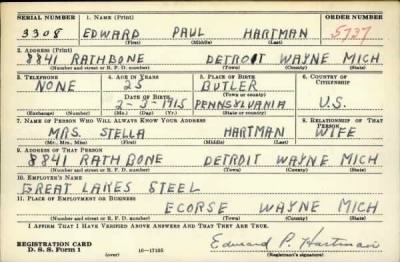 SERIAL NUMBER 1. NAME (Print) ORDER NUMBER
3308 EDWARD PAUL HARTMAN 5737
(First) (Middle) (Last)
2. ADDRESS (Print)
8841 RATHBONE DETROIT WAYNE MICH
(Number and street or R. F. D. number) (Town) (County) (State)
3. TELEPHONE 4. AGE IN YEARS 5. PLACE OF BIRTH 6. COUNTRY OF CITIZENSHIP
NONE 25 BUTLER
DATE OF BIRTH (Town or county)
2-3-1915 PENNSYLVANIA U.S.
(Exchange) (Number) (Mo.) (Day) (Yr.) (State or country)
7. NAME OF PERSON WHO WILL ALWAYS KNOW YOUR ADDRESS 8. RELATIONSHIP OF THAT PERSON
MRS. STELLA HARTMAN WIFE
(Mr., Mrs., Miss) (First) (Middle) (Last)
9. ADDRESS OF THAT PERSON
8841 RATHBONE DETROIT WAYNE MICH
(Number and street or R. F. D. number) (Town) (County) (State)
10. EMPLOYER'S NAME
GREAT LAKES STEEL
11. PLACE OF EMPLOYMENT OR BUSINESS
ECORSE WAYNE MICH
(Number and street or R. F. D. number) (Town) (County) (State)
I AFFIRM THAT I HAVE VERIFIED ABOVE ANSWERS AND THAT THEY ARE TRUE.
REGISTRATION CARD
D. S. S. Form 1 16-17105 Edward P. Hartman
(over) (Registrant's signature)